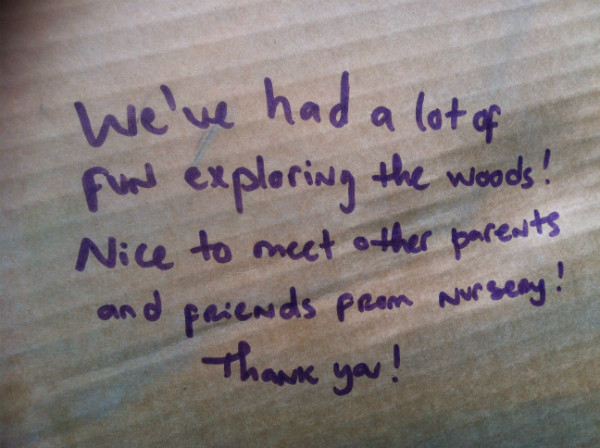 We've had a lot of
fun exploring the woods!
Nice to meet other parents
and friends from nursery!
Thank you!